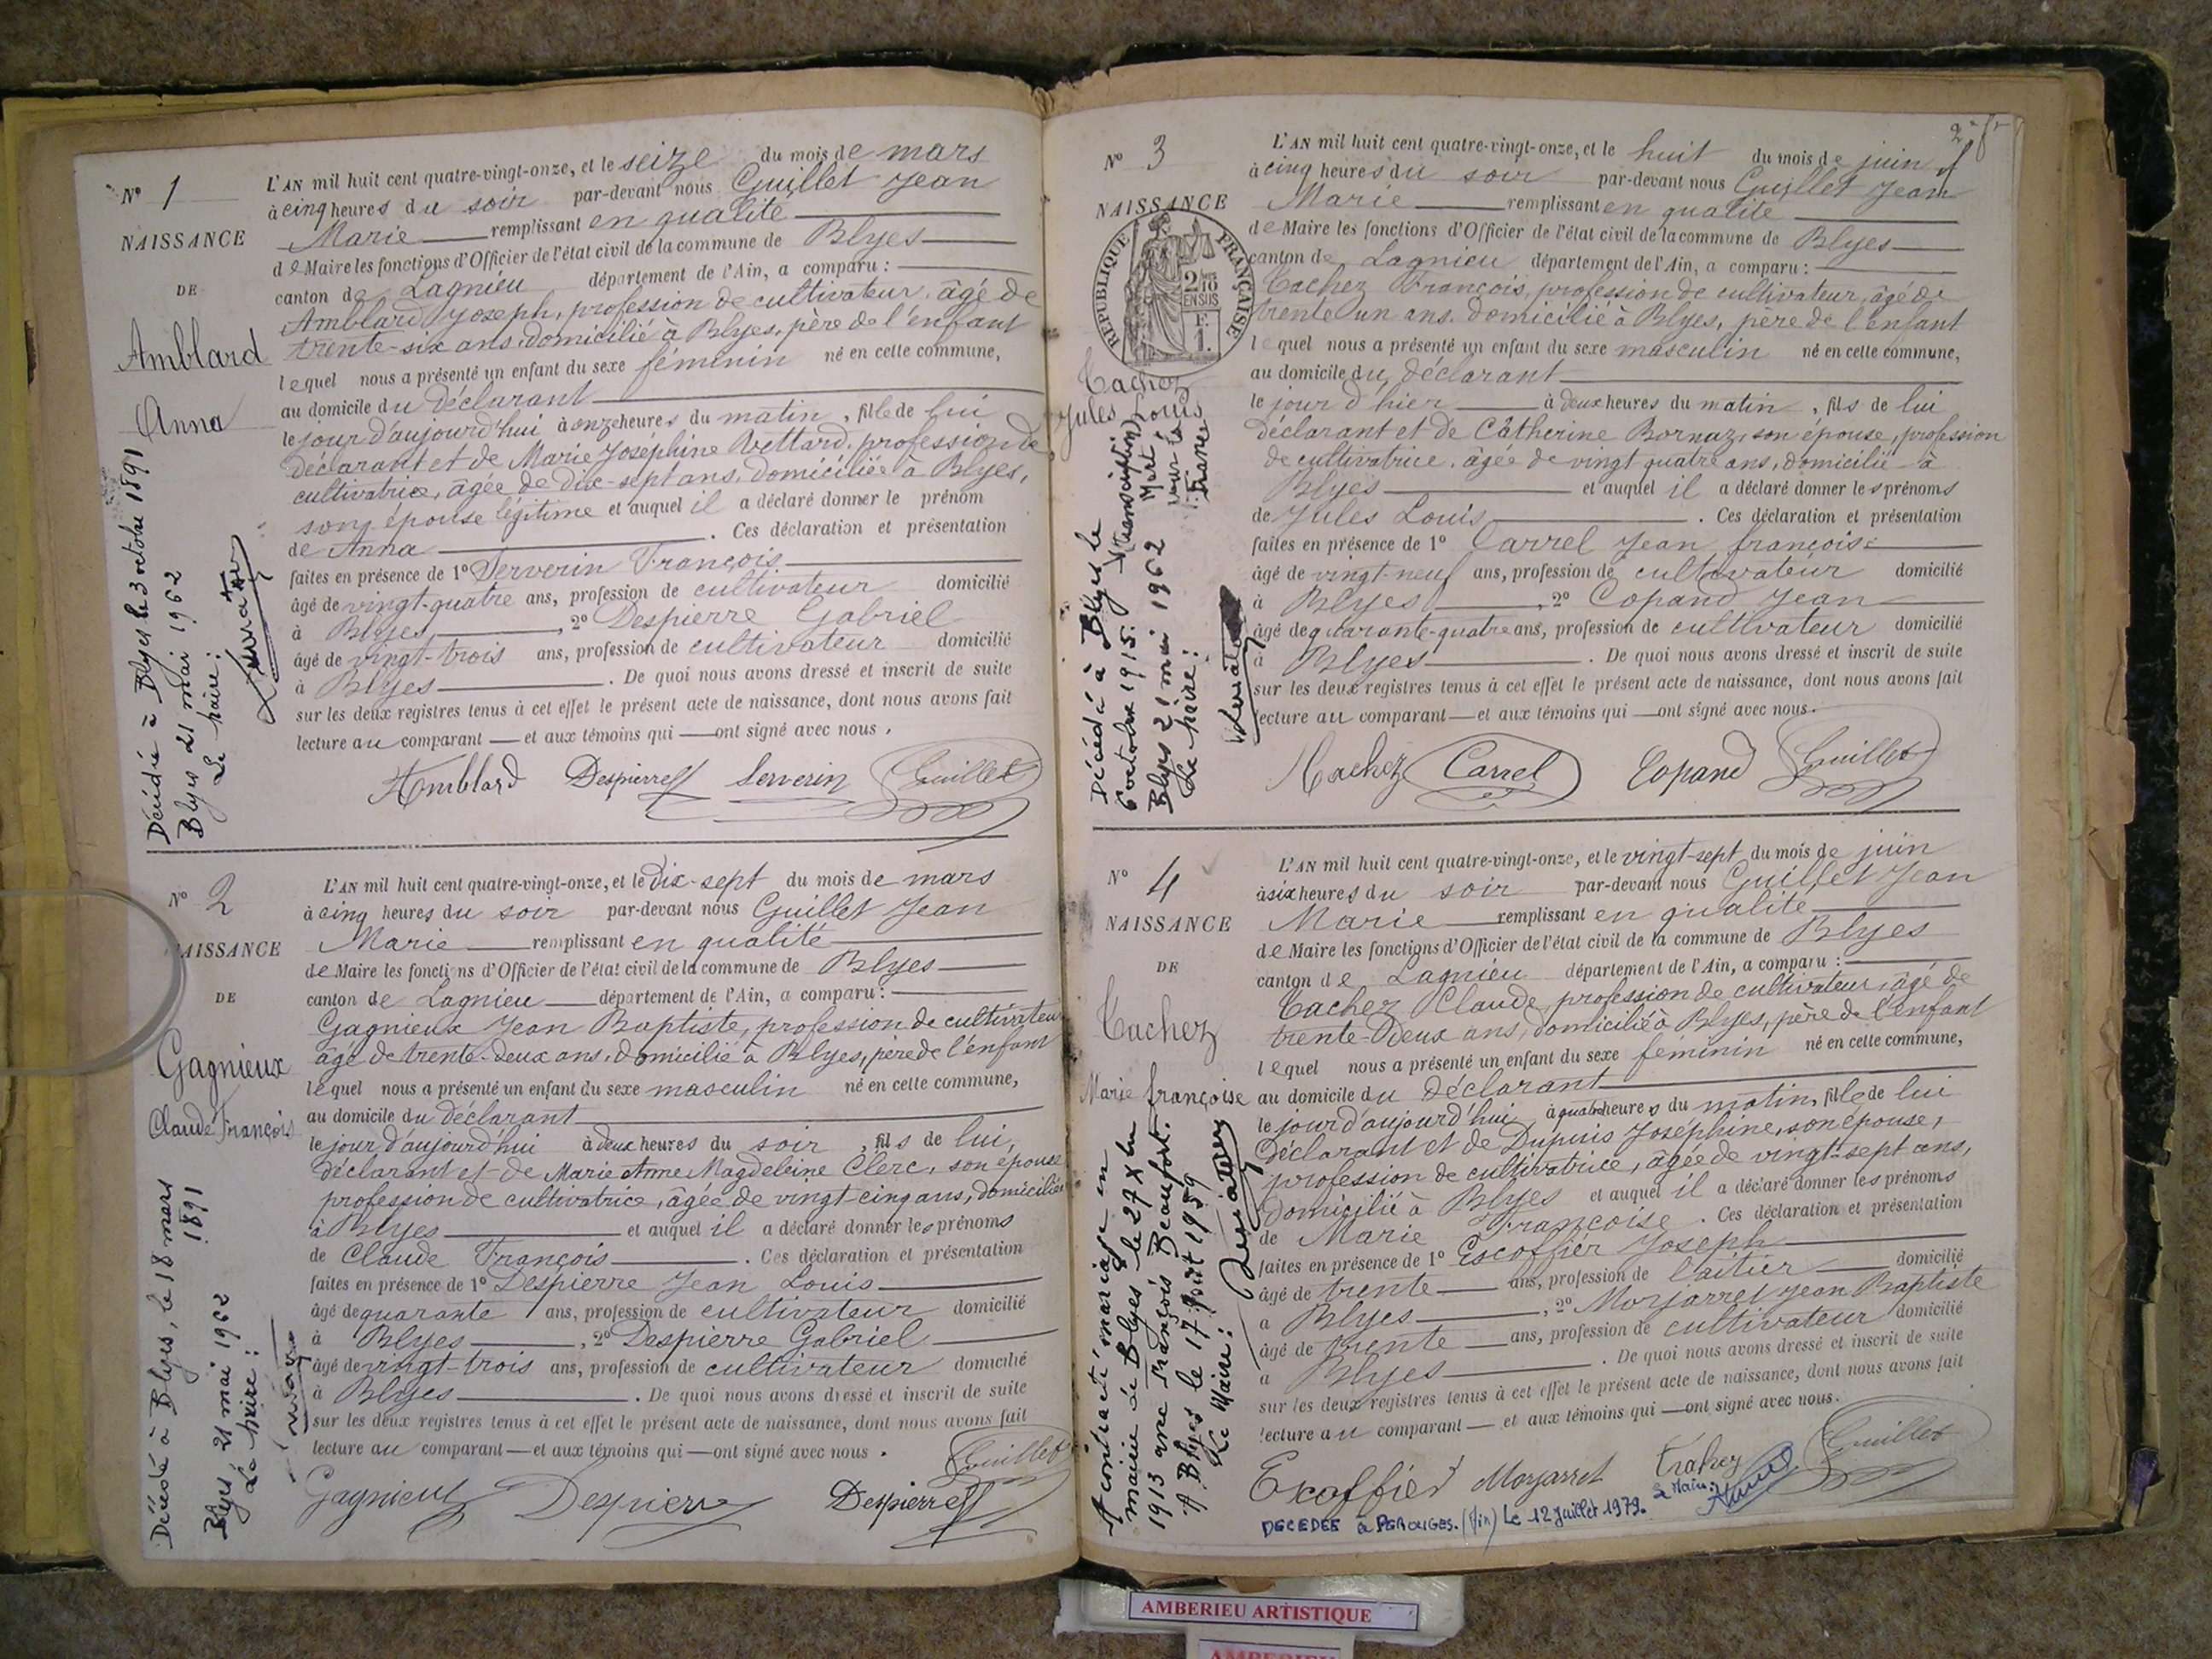 N° 1
NAISSANCE
DE
Amblard
Anna
Décédée à Blyes le 3 octobre 1891
Blyes 21 mai 1962
Le Maire :
L'AN mil huit cent quatre-vingt-onze, et le seize du mois de mars
à cinq heures du soir par-devant nous Guillet Jean
Marie remplissant en qualité
de Maire les fonctions d'Officier de l'état civil de la commune de Blyes
canton de Lagnieu département de l'Ain, a comparu :
Amblard Joseph, profession de cultivateur, âgé de
trente-six ans, domicilié à Blyes, père de l'enfant
lequel nous a présenté un enfant du sexe féminin né en cette commune,
au domicile du déclarant
le jour d'aujourd'hui à onze heures du matin, fille de lui
déclarant et de Marie Joséphine Vettard, profession de
cultivatrice, âgée de dix-sept ans, domiciliée à Blyes,
son épouse légitime et auquel il a déclaré donner le prénom
de Anna . Ces déclaration et présentation
faites en présence de 1° Serverin François
âgé de vingt-quatre ans, profession de cultivateur domicilié
à Blyes , 2° Despierre Gabriel
âgé de vingt-trois ans, profession de cultivateur domicilié
à Blyes . De quoi nous avons dressé et inscrit de suite
sur les deux registres tenus à cet effet le présent acte de naissance, dont nous avons fait
lecture au comparant et aux témoins qui ont signé avec nous .
Amblard Despierre Serverin Guillet
N° 2
NAISSANCE
DE
Gagnieux
Claude François
Décédé à Blyes, le 18 mars
1891
Blyes 21 mai 1962
Le Maire :
L'AN mil huit cent quatre-vingt-onze, et le dix-sept du mois de mars
à cinq heures du soir par-devant nous Guillet Jean
Marie remplissant en qualité
de Maire les fonctions d'Officier de l'état civil de la commune de Blyes
canton de Lagnieu département de l'Ain, a comparu :
Gagnieux Jean Baptiste, profession de cultivateur
âgé de trente-deux ans, domicilié à Blyes, père de l'enfant
lequel nous a présenté un enfant du sexe masculin né en cette commune,
au domicile du déclarant
le jour d'aujourd'hui à deux heures du soir , fils de lui,
déclarant et de Marie Anne Magdeleine Clerc, son épouse
profession de cultivatrice, âgée de vingt-cinq ans, domiciliée
à Blyes et auquel il a déclaré donner les prénoms
de Claude François . Ces déclaration et présentation
faites en présence de 1° Despierre Jean Louis
âgé de quarante ans, profession de cultivateur domicilié
à Blyes , 2° Despierre Gabriel
âgé de vingt-trois ans, profession de cultivateur domicilié
à Blyes . De quoi nous avons dressé et inscrit de suite
sur les deux registres tenus à cet effet le présent acte de naissance, dont nous avons fait
lecture au comparant et aux témoins qui ont signé avec nous .
Guillet
Gagnieux Despierre Despierre
N° 3
NAISSANCE
REPUBLIQUE FRANÇAISE
EN SUS
Cachez
Jules Louis
Décédé à Blyes le
6 octobre 1915. (transcription) Mort pour la France
Blyes 21 mai 1962
Le Maire :
L'AN mil huit cent quatre-vingt-onze, et le huit du mois de juin
à cinq heures du soir par-devant nous Guillet Jean
Marie remplissant en qualité
de Maire les fonctions d'Officier de l'état civil de la commune de Blyes
canton de Lagnieu département de l'Ain, a comparu :
Cachez François, profession de cultivateur, âgé de
trente un ans, domicilié à Blyes, père de l'enfant
lequel nous a présenté un enfant du sexe masculin né en cette commune,
au domicile du déclarant
le jour d'hier à deux heures du matin , fils de lui
déclarant et de Catherine Bornaz, son épouse, profession
de cultivatrice, âgée de vingt quatre ans, domicilié à
Blyes et auquel il a déclaré donner les prénoms
de Jules Louis . Ces déclaration et présentation
faites en présence de 1° Carrel Jean françois
âgé de vingt-neuf ans, profession de cultivateur domicilié
à Blyes , 2° Copand Jean
âgé de quarante-quatre ans, profession de cultivateur domicilié
à Blyes . De quoi nous avons dressé et inscrit de suite
sur les deux registres tenus à cet effet le présent acte de naissance, dont nous avons fait
lecture au comparant et aux témoins qui ont signé avec nous .
Cachez Carrel Copand Guillet
N° 4
NAISSANCE
DE
Cachez
Marie françoise
A contracté mariage en
mairie de Blyes le 27
1913 avec François Beaufort.
A Blyes le 17 Août 1959
Le Maire :
L'AN mil huit cent quatre-vingt-onze, et le vingt-sept du mois de juin
à six heures du soir par-devant nous Guillet Jean
Marie remplissant en qualité
de Maire les fonctions d'Officier de l'état civil de la commune de Blyes
canton de Lagnieu département de l'Ain, a comparu :
Cachez Claude, profession de cultivateur, âgé de
trente-deux ans, domicilié à Blyes, père de l'enfant
lequel nous a présenté un enfant du sexe féminin né en cette commune,
au domicile du déclarant
le jour d'aujourd'hui à quatre heures du matin, fille de lui
déclarant et de Dupuis Joséphine, son épouse,
profession de cultivatrice, âgée de vingt-sept ans,
domicilié à Blyes et auquel il a déclaré donner les prénoms
de Marie Françoise . Ces déclaration et présentation
faites en présence de 1° Escoffier Joseph
âgé de trente ans, profession de laitier domicilié
à Blyes , 2° Morjarret Jean Baptiste
âgé de trente ans, profession de cultivateur domicilié
à Blyes . De quoi nous avons dressé et inscrit de suite
sur les deux registres tenus à cet effet le présent acte de naissance, dont nous avons fait
lecture au comparant et aux témoins qui ont signé avec nous.
Excoffier Morjarret Guillet
DECEDEE à PEROUGES. (Ain) Le 12 Juillet 1979. Le Maire :
AMBERIEU ARTISTIQUE
AMBERIEU